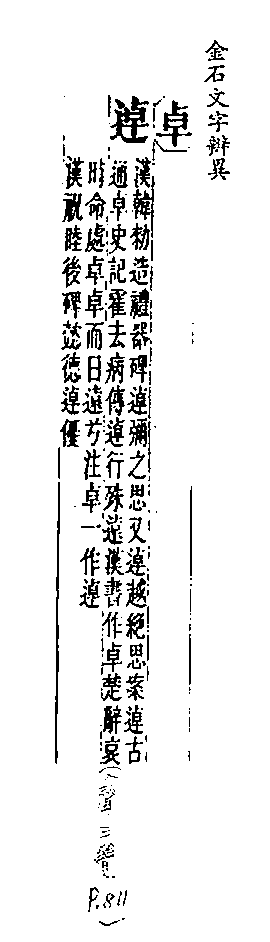 金石文字辨異
卓
逴
漢韓勑造禮器碑逴彌之思又逴越絕思案逴古
通卓史記霍去病傳逴行殊遠漢書作卓楚辭哀
時命處卓卓而日遠兮注卓一作逴
漢祝睦後碑懿德逴優
P.811